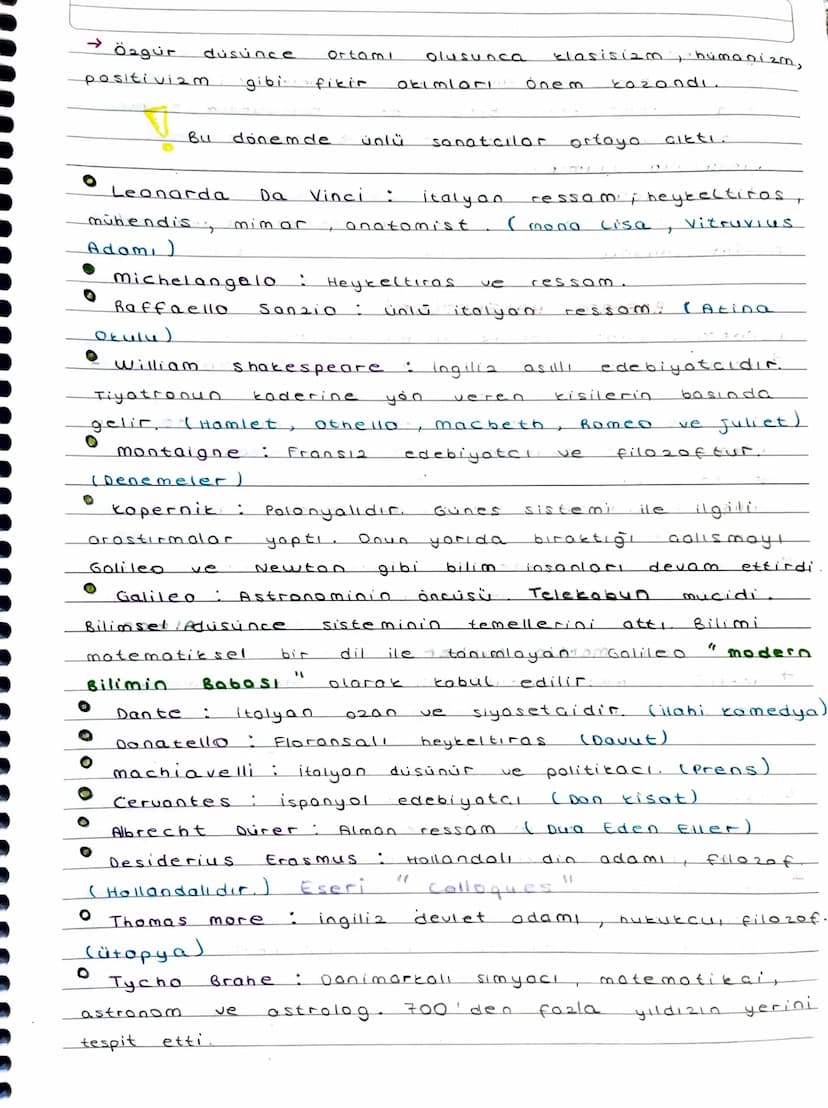 → Özgür düsünce ortamı olusunca klasisizm, hümanizm,
positivizm gibi fikir akımları önem kazandı.
! Bu dönemde ünlü sanatcılar ortaya cıktı.
• Leonarda Da Vinci : italyan ressam, heykeltıras,
mühendis, mimar, anatomist. (mona Lisa, Vitruvius
Adamı)
• michelangelo : Heykeltıras ve ressam.
• Raffaello Sanzio : ünlü italyan ressam. (Atina
Okulu)
• William Shakespeare : ingiliz asıllı edebiyatcıdır.
Tiyatronun kaderine yön veren kisilerin basında
gelir. (Hamlet, Othello, macbeth, Romeo ve juliet)
• montaigne : Fransız edebiyatcı ve filozoftur.
(Denemeler)
• Kopernik : Polonyalıdır. Günes sistemi ile ilgili
arastırmalar yaptı. Onun yarıda bıraktığı calısmayı
Galileo ve Newton gibi bilim insanları devam ettirdi.
• Galileo : Astronominin öncüsü. Teleskobun mucidi.
Bilimsel düsünce sisteminin temellerini attı. Bilimi
matematiksel bir dil ile tanımlayan Galileo "modern
Bilimin Babası" olarak kabul edilir.
• Dante : italyan ozan ve siyasetcidir. (ilahi komedya)
• Donatello : Floransalı heykeltıras (Davut)
• machiavelli : italyan düsünür ve politikacı. (Prens)
• Cervantes : ispanyol edebiyatcı (Don kisot)
• Albrecht Dürer : Alman ressam (Dua Eden Eller)
• Desiderius Erasmus : Hollandalı din adamı, filozof.
(Hollandalıdır.) Eseri "Colloques"
• Thomas more : ingiliz devlet adamı, hukukcu, filozof.
(ütopya)
• Tycho Brahe : Danimarkalı simyacı, matematikci,
astronom ve astrolog. 700'den fazla yıldızın yerini
tespit etti.